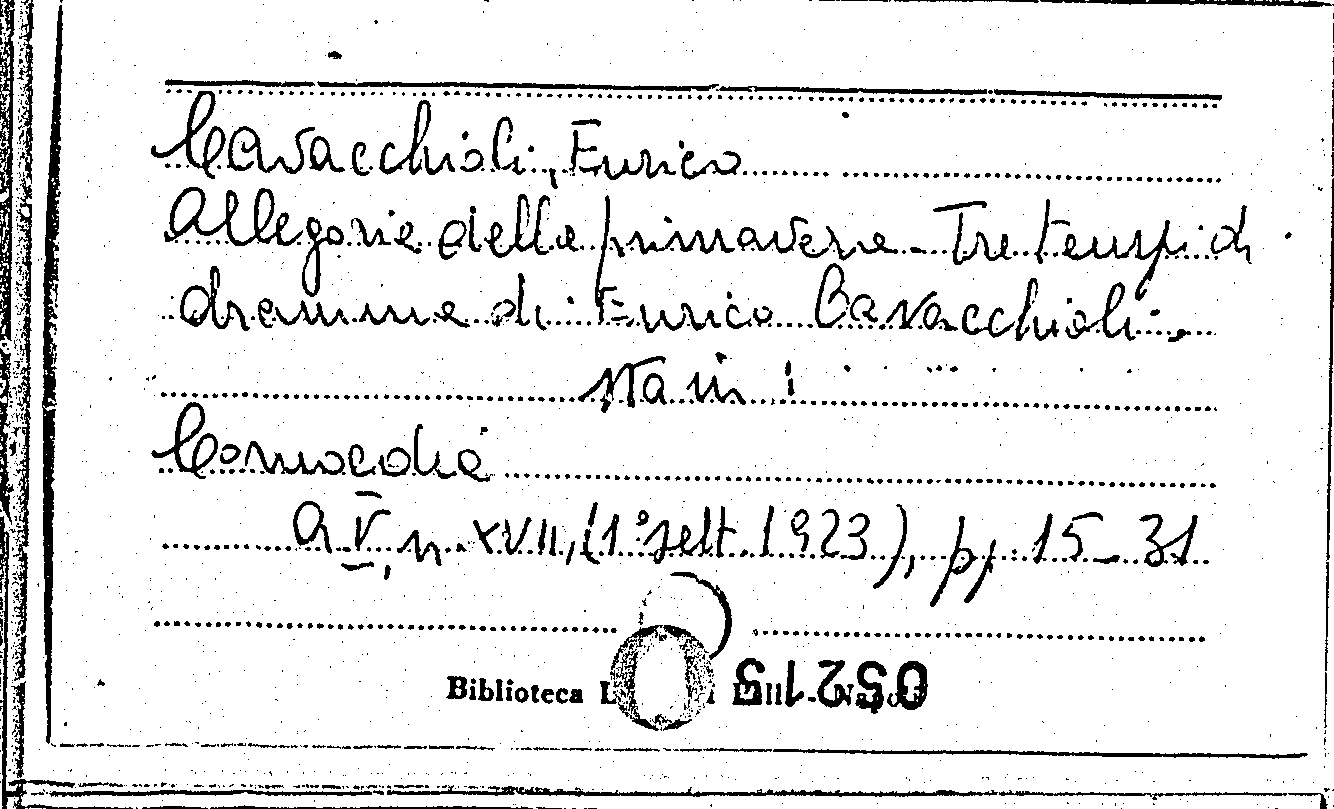 Cavacchioli, Enrico
Allegorie della primavera - Tre tempi di
dramma di Enrico Cavacchioli.
sta in :
Comoedia
a. V, n. XVII, (1° sett. 1923), pp. 15-31
Biblioteca
05215